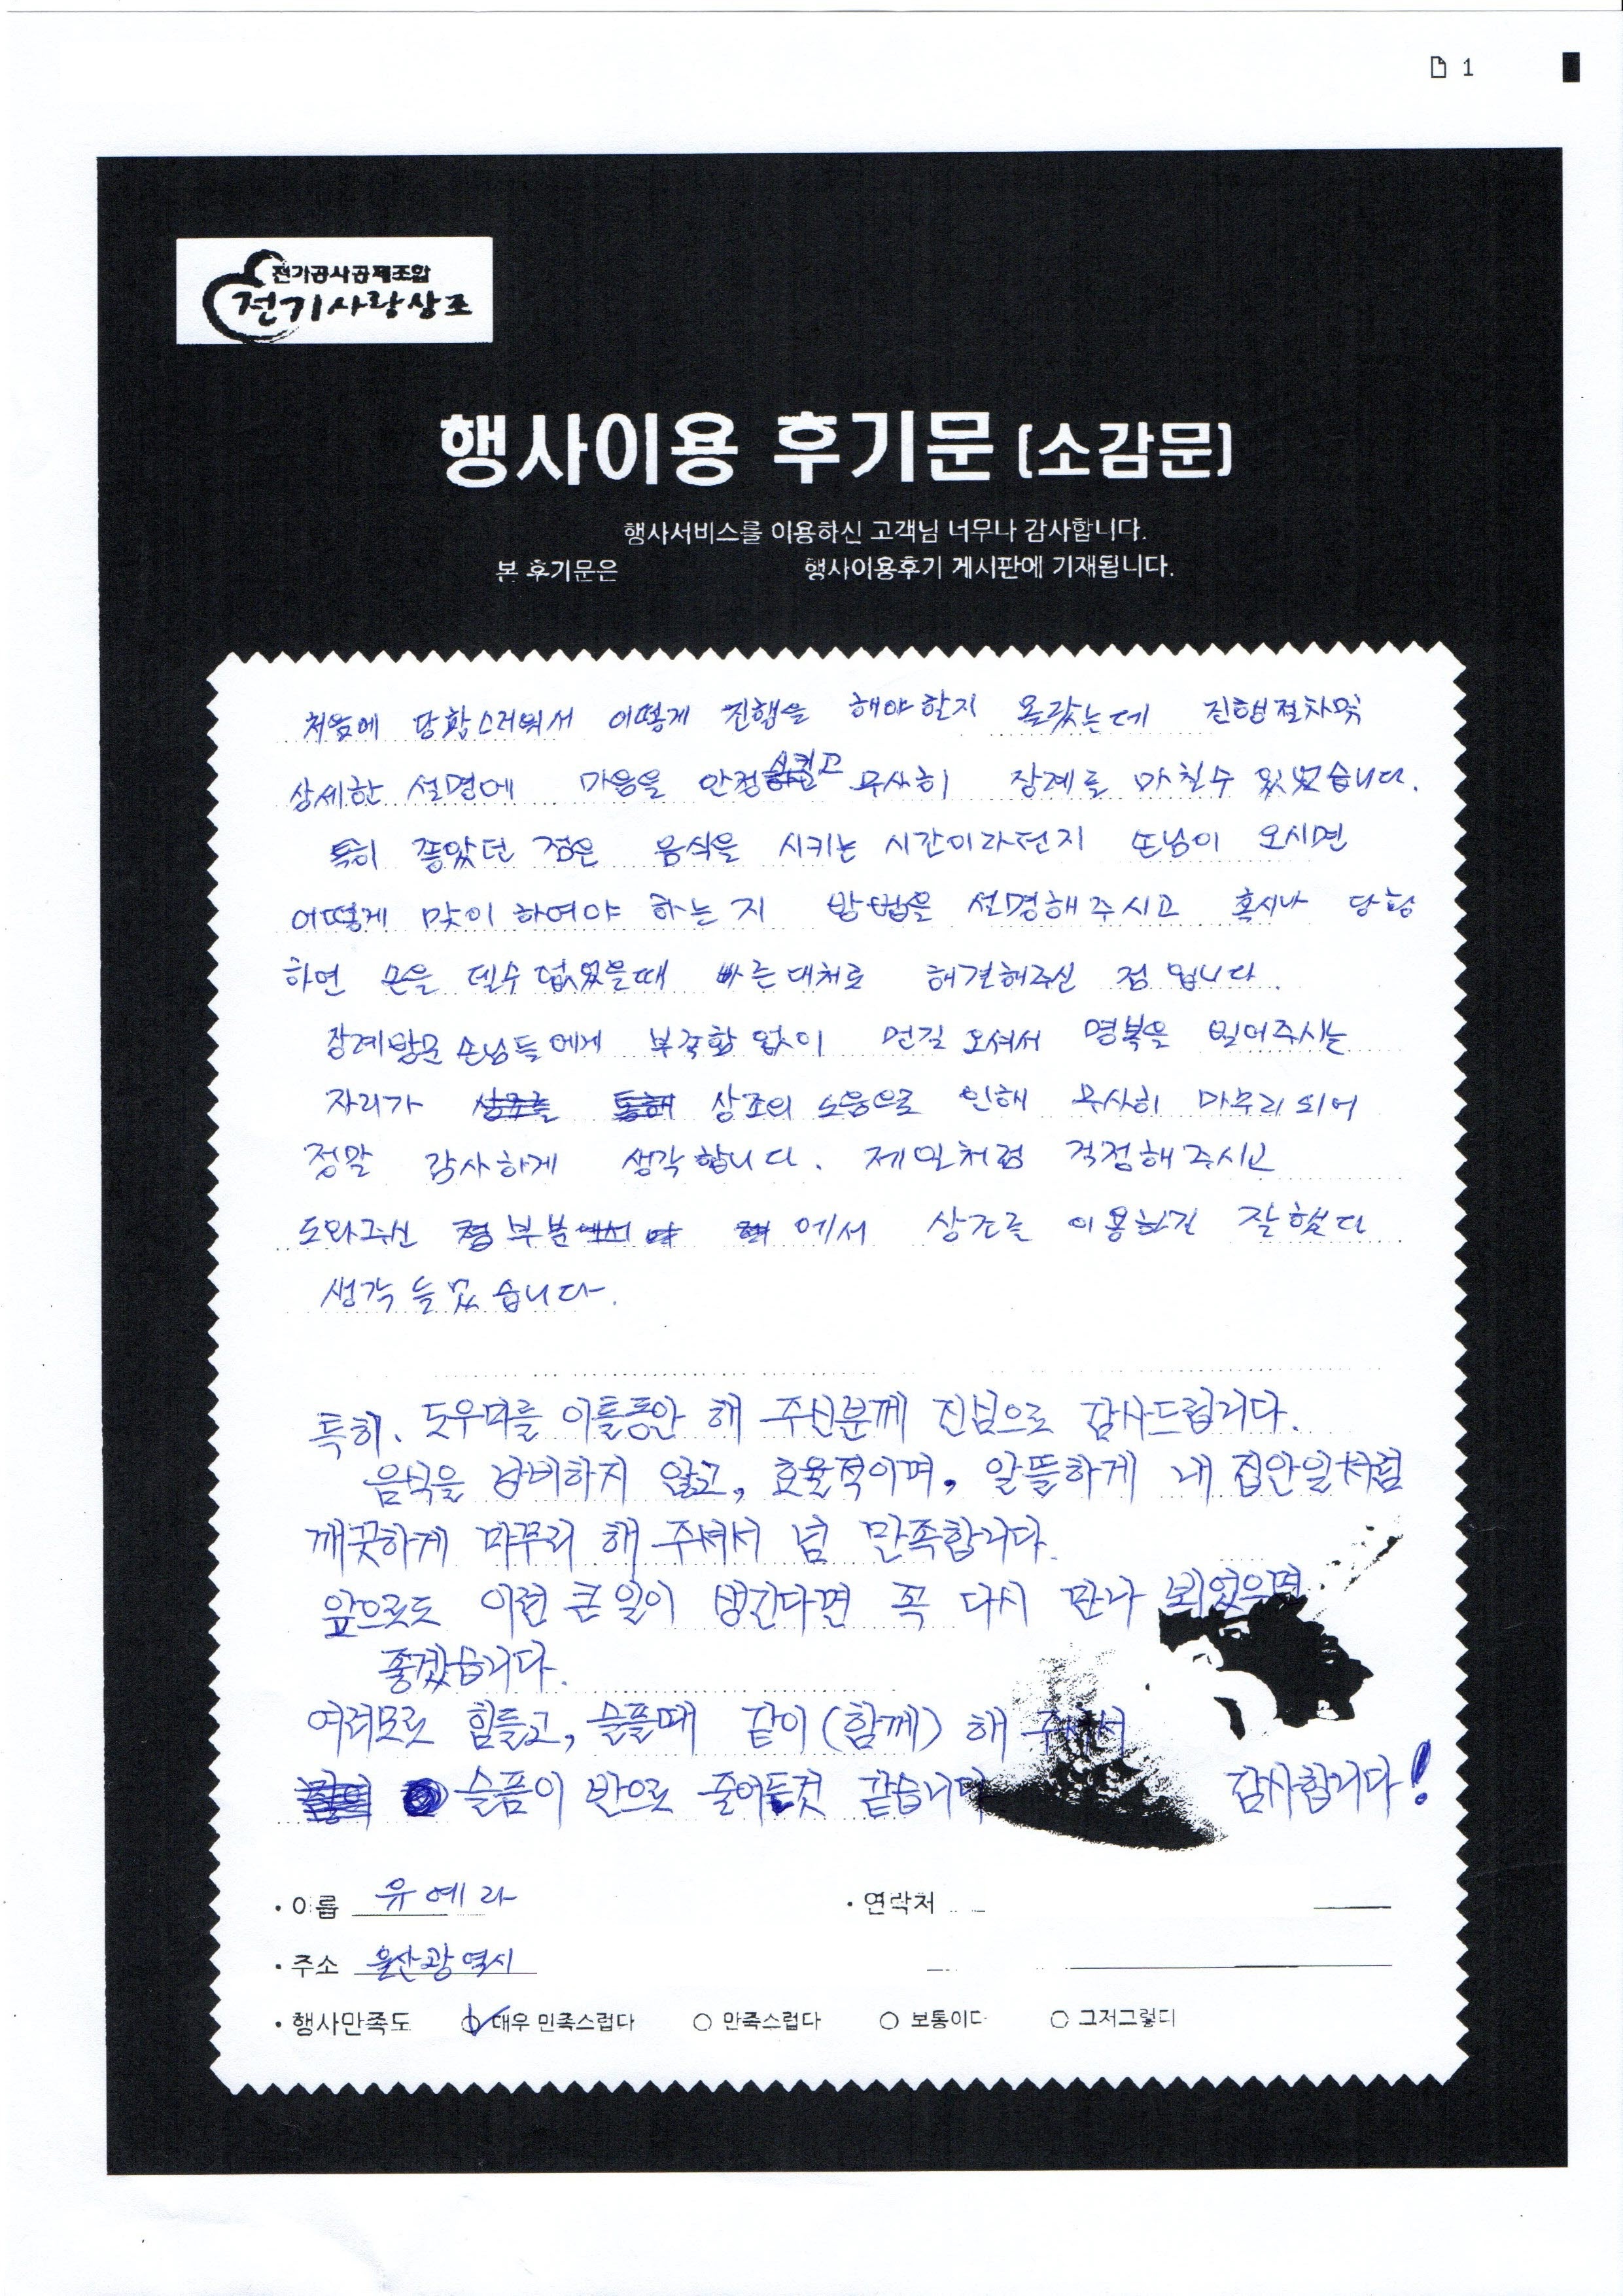 1
전기공사공제조합
전기사랑상조
행사이용 후기문 (소감문)
행사서비스를 이용하신 고객님 너무나 감사합니다.
본 후기문은 행사이용후기 게시판에 기재됩니다.
처음에 당황스러워서 어떻게 진행을 해야할지 몰랐는데 진행절차및
상세한 설명에 마음을 안정시키고 무사히 장례를 마칠수 있었습니다.
특히 좋았던 점은 음식을 시키는 시간이라던지 손님이 오시면
어떻게 맞이하여야 하는지 방법을 설명해주시고 혹시나 당황
하면 손을 델수 없었을때 빠른대처로 해결해주신 점 입니다.
장례방문 손님들에게 부족함 없이 먼길 오셔서 명복을 빌어주시는
자리가 상조의 도움으로 인해 무사히 마무리 되어
정말 감사하게 생각합니다. 제일처럼 걱정해주시고
도와주신 부분에서 상조를 이용하길 잘했다
생각 들었습니다.
특히. 도우미를 이틀동안 해 주신분께 진심으로 감사드립니다.
음식을 낭비하지 않고, 효율적이며, 알뜰하게 내 집안일처럼
깨끗하게 마무리 해 주셔서 넘 만족합니다.
앞으로도 이런 큰일이 생긴다면 꼭 다시 만나 뵈었으면
좋겠습니다.
여러모로 힘들고, 슬플때 같이(함께) 해 주셔서
슬픔이 반으로 줄어든것 같습니다 감사합니다!
• 이름 유예라 • 연락처
• 주소 울산광역시
• 행사만족도 ○ 매우 만족스럽다 ○ 만족스럽다 ○ 보통이다 ○ 그저그렇다